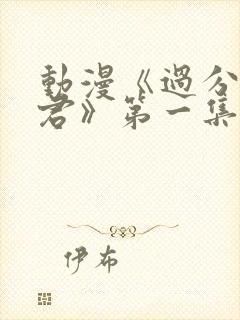 動漫《過分
君》第一集
伊布